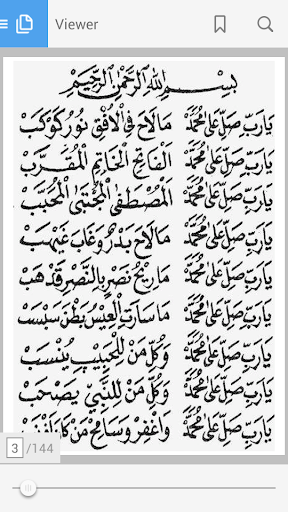 Viewer
بِسْمِ اللهِ الرَّحْمٰنِ الرَّحِيْمِ
يَارَبِّ صَلِّ عَلٰى مُحَمَّدْ مَا لَاحَ فِي الْاُفْقِ نُوْرُ كَوْكَبْ
يَارَبِّ صَلِّ عَلٰى مُحَمَّدْ اَلْفَاتِحِ الْخَاتِمِ الْمُقَرَّبْ
يَارَبِّ صَلِّ عَلٰى مُحَمَّدْ اَلْمُصْطَفَى الْمُجْتَبَى الْمُحَبَّبْ
يَارَبِّ صَلِّ عَلٰى مُحَمَّدْ مَا لَاحَ بَدْرٌ وَغَابَ غَيْهَبْ
يَارَبِّ صَلِّ عَلٰى مُحَمَّدْ مَارِيْحُ نَصْرٍ بِالنَّصْرِ قَدْ هَبْ
يَارَبِّ صَلِّ عَلٰى مُحَمَّدْ مَا سَارَتِ الْعِيْسُ بَطْنَ سَبْسَبْ
يَارَبِّ صَلِّ عَلٰى مُحَمَّدْ وَكُلِّ مَنْ لِلْحَبِيْبِ يُنْسَبْ
يَارَبِّ صَلِّ عَلٰى مُحَمَّدْ وَكُلِّ مَنْ لِلنَّبِيِّ يَصْحَبْ
يَارَبِّ صَلِّ عَلٰى مُحَمَّدْ وَاغْفِرْ وَسَامِحْ مَنْ كَانَ اَذْنَبْ
3 /144